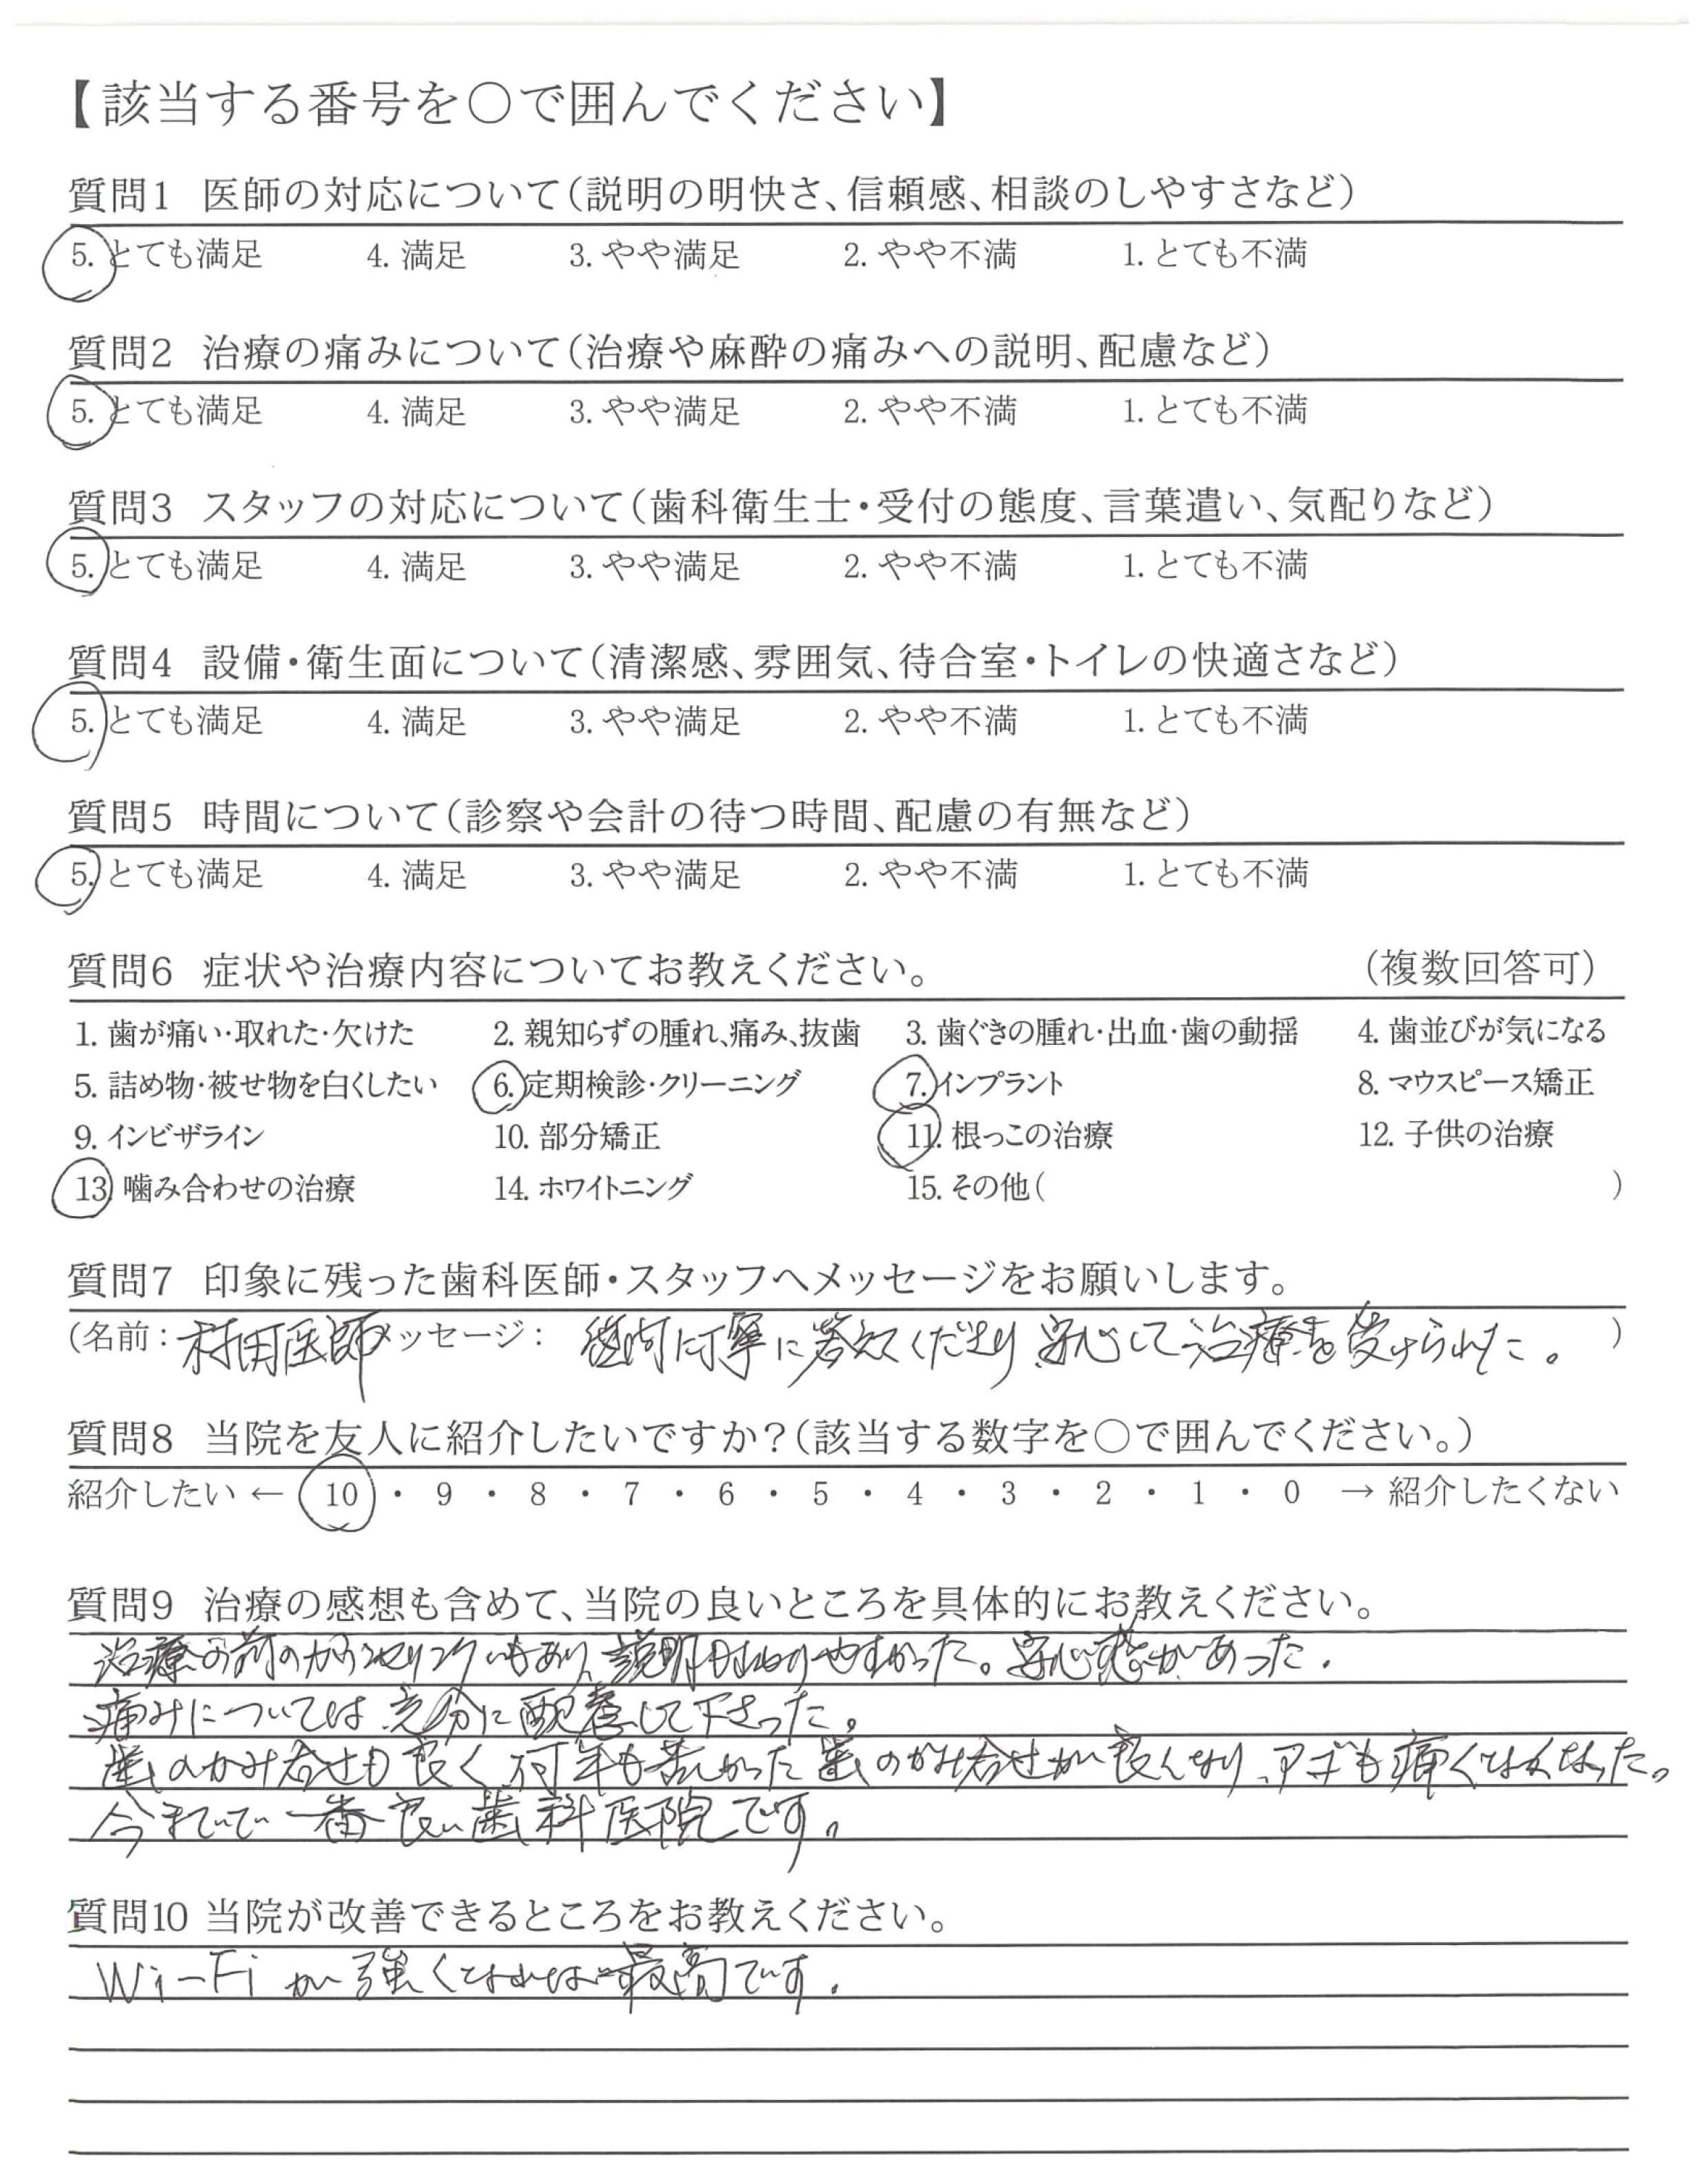 【該当する番号を〇で囲んでください】
質問1 医師の対応について(説明の明快さ、信頼感、相談のしやすさなど)
5. とても満足 4. 満足 3. やや満足 2. やや不満 1. とても不満
質問2 治療の痛みについて(治療や麻酔の痛みへの説明、配慮など)
5. とても満足 4. 満足 3. やや満足 2. やや不満 1. とても不満
質問3 スタッフの対応について(歯科衛生士・受付の態度、言葉遣い、気配りなど)
5. とても満足 4. 満足 3. やや満足 2. やや不満 1. とても不満
質問4 設備・衛生面について(清潔感、雰囲気、待合室・トイレの快適さなど)
5. とても満足 4. 満足 3. やや満足 2. やや不満 1. とても不満
質問5 時間について(診察や会計の待つ時間、配慮の有無など)
5. とても満足 4. 満足 3. やや満足 2. やや不満 1. とても不満
質問6 症状や治療内容についてお教えください。 (複数回答可)
1. 歯が痛い・取れた・欠けた 2. 親知らずの腫れ、痛み、抜歯 3. 歯ぐきの腫れ・出血・歯の動揺 4. 歯並びが気になる
5. 詰め物・被せ物を白くしたい 6. 定期検診・クリーニング 7. インプラント 8. マウスピース矯正
9. インビザライン 10. 部分矯正 11. 根っこの治療 12. 子供の治療
13. 噛み合わせの治療 14. ホワイトニング 15. その他( )
質問7 印象に残った歯科医師・スタッフへメッセージをお願いします。
(名前: 村田医師 メッセージ: 丁寧に答えてくださり 安心して治療を受けられた。 )
質問8 当院を友人に紹介したいですか?(該当する数字を〇で囲んでください。)
紹介したい ← 10 ・ 9 ・ 8 ・ 7 ・ 6 ・ 5 ・ 4 ・ 3 ・ 2 ・ 1 ・ 0 → 紹介したくない
質問9 治療の感想も含めて、当院の良いところを具体的にお教えください。
治療の前のカウンセリングもあり、説明もわかりやすかった。安心感があった.
痛みについては充分に配慮して下さった。
歯のかみ合せも良く 何年も苦しかった歯のかみ合せが良くなり、アゴも痛くなくなった。
今までで一番良い歯科医院です。
質問10 当院が改善できるところをお教えください。
Wi-Fiが強くなれば最高です.